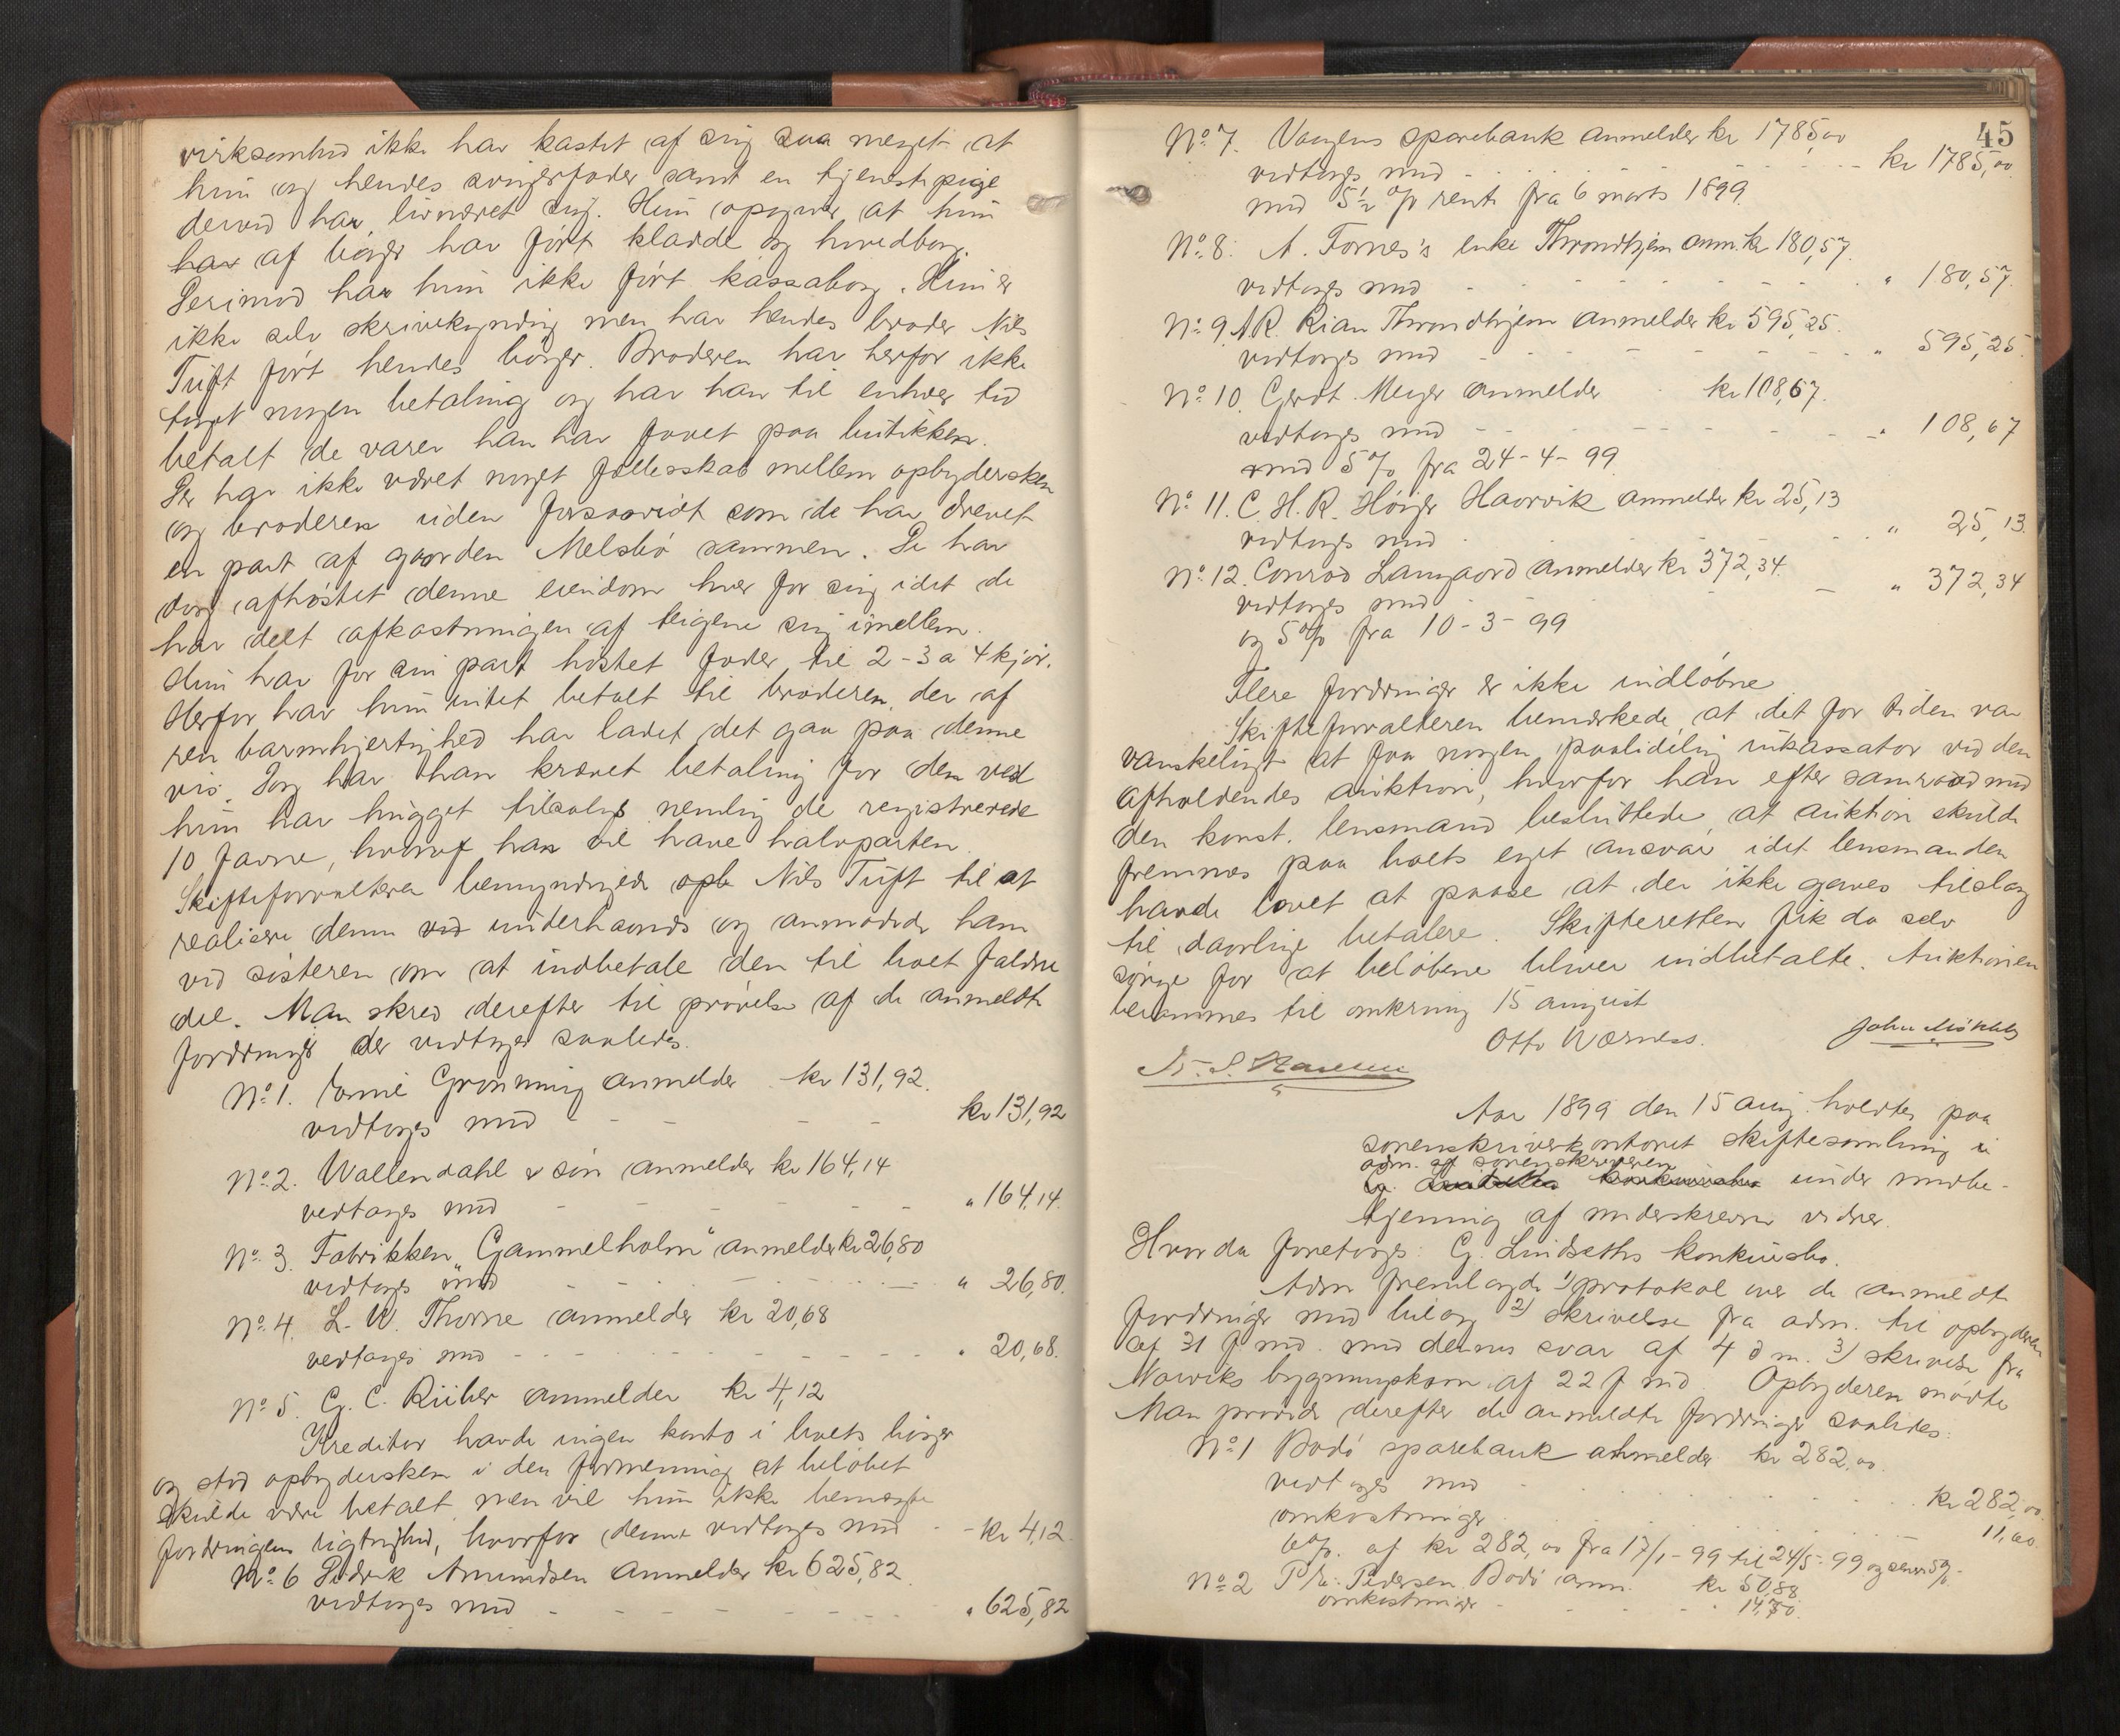 virksomhed ikke har kastet af sig saa meget at
hun og hendes svigerfader samt en tjenestepige
derved har livnæret sig. Hun opgiver at hun
har af bøger har ført kladde og hovedbog.
Derimod har hun ikke ført kassabog. Hun er
ikke selv skrivekyndig men har hendes broder Nils
Tuft ført hendes bøger. Broderen har herfor ikke
taget nogen betaling og har han til enhver tid
betalt de varer han har faaet paa butikken.
Der har ikke været noget fællesskab mellem opbydersken
og broderen uden forsaavidt som de har drevet
en part af gaarden Melsbø sammen. De har
dog afhøstet denne eiendom hver for sig idet de
har delt afkastningen af teigene sig imellem.
Hun har for sin part høstet foder til 2-3 a 4 kjør.
Herfor har hun intet betalt til broderen, der af
ren barmhjertighed har ladet det gaa paa denne
vis. Dog har han krævet betaling for den ved
hun har hugget tilsalgs nemlig de registrerede
10 favne, hvoraf han vil have halvparten.
Skifteforvalteren bemyndigede opb Nils Tuft til at
realisere denne ved underhaands og anmodede ham
ved søsteren om at indbetale den til boet faldne
del. Man skred derefter til prøvelse af de anmeldte
fordringer der vedtoges saaledes.
No. 1. Grønning anmelder kr 131,92.
vedtoges med - - - - kr 131,92
No. 2. Wallendahl & søn anmelder kr 164,14
vedtoges med - - - - " 164,14.
No. 3. Fabrikken "Gammelholm" anmelder kr 26,80
vedtoges med - - - - " 26,80.
No. 4. L. W. Thorne anmelder kr 20,68
vedtoges med - - - - " 20,68.
No. 5. G. C. Rieber anmelder kr 4,12
Kreditor havde ingen konto i boets bøger
og stod opbydersken i den formening at beløbet
skulde være betalt men vil hun ikke benægte
fordringens rigtighed, hvorfor denne vedtoges med - - kr 4,12.
No. 6 Didrik Amundsen anmelder kr 625,82
vedtoges med - - - - " 625,82
45
No. 7. Vaagens sparebank anmelder kr 1785,00
vedtoges med - - - - kr 1785,00
med 5½ % rente fra 6 marts 1899.
No. 8. A. Fornes's enke Throndhjem anm. kr 180,57.
vedtoges med - - - - " 180,57.
No. 9. A R. Rian Throndhjem anmelder kr 595,25.
vedtoges med - - - - " 595,25.
No. 10. Gerdt Meyer anmelder kr 108,67.
vedtoges med - - - - " 108,67
med 5 % fra 24-4-99
No. 11. C. H. R. Høyer Haarvik anmelder kr 25,13
vedtoges med - - - - " 25,13.
No. 12. Conrad Langaard anmelder kr 372,34.
vedtoges med - - - - " 372,34
og 5 % fra 10-3-99
Flere fordringer er ikke indløbne
Skifteforvalteren bemærkede, at det for tiden var
vanskeligt at faa nogen paalidelig inkassator ved den
afholdendes auktion, hvorfor han efter samraad med
den konst. lensmand besluttede, at auktion skulde
fremmes paa boets eget ansvar idet lensmanden
havde lovet at paase at der ikke gaves tilslag
til daarlige betalere. Skifteretten fik da selv
sørge for at beløbene bliver indbetalte. Auktionen
berammes til omkring 15 august
Otto Wærness.
Aar 1899 den 15 aug. holdtes paa
sorenskriverkontoret skiftesamling i
adm. af sorenskriveren
under medbe-
tjening af underskrevne vidner.
Hvorda foretoges: G. Lindseths konkursbo.
Adm fremlagde 1) protokol over de anmeldte
fordringer med bilag 2) skrivelse fra adm. til opbyderen
af 31 f md. med dennes svar af 4 d m. 3) skrivelse fra
Narviks bygningskom. af 22 f md. Opbyderen mødte
Man prøvede derefter de anmeldte fordringer saaledes:
No. 1 Bodø sparebank anmelder kr 282,00.
vedtoges med - - - - kr 282,00.
omkostninger - - - - 11,60.
6 %. af kr 282,00 fra 17/1-99 til 24/5-99 og senere 5 %.
No. 2 Pedersen Bodø anm. kr 50,88.
omkostninger - - - 14,70.